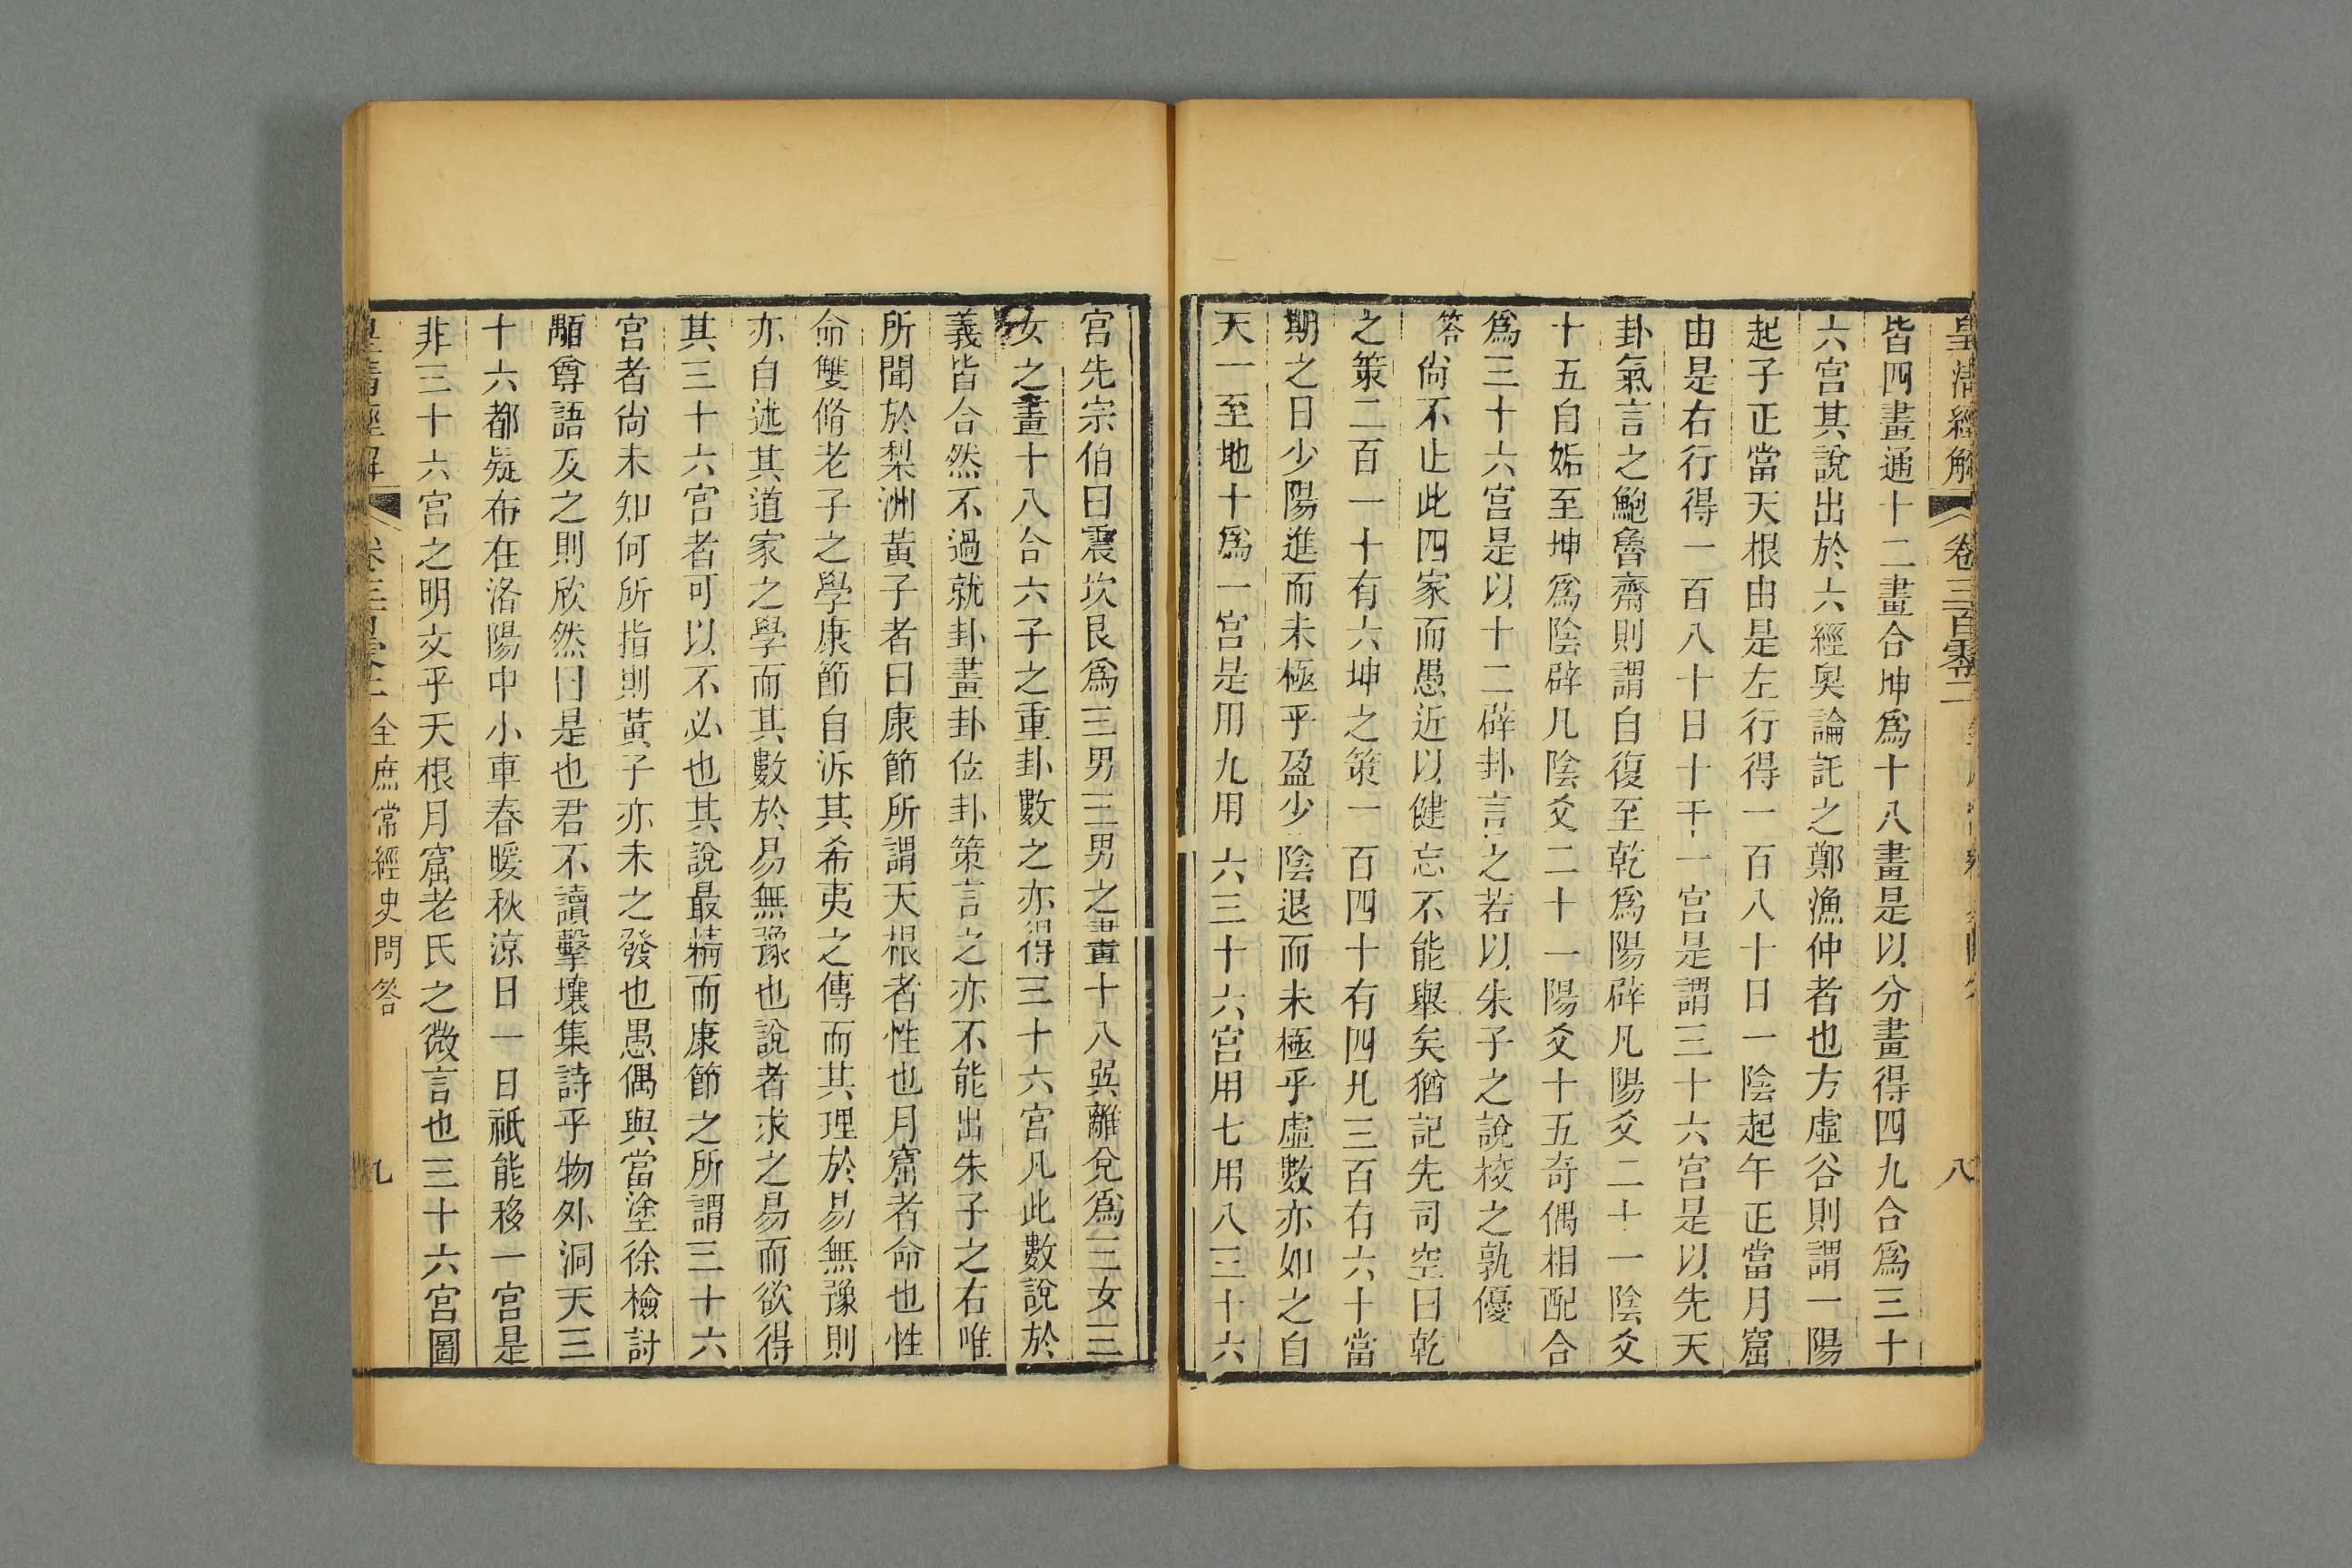 皇清經解 卷三百零二 八
皆四畫通十二畫合坤爲十八畫是以分畫得四九合爲三十
六宮其說出於六經奧論託之鄭漁仲者也方虛谷則謂一陽
起子正當天根由是左行得一百八十日一陰起午正當月窟
由是右行得一百八十日十干一宮是謂三十六宮是以先天
卦氣言之鮑魯齋則謂自復至乾爲陽辟凡陽爻二十一陰爻
十五自姤至坤爲陰辟凡陰爻二十一陽爻十五奇偶相配合
爲三十六宮是以十二辟卦言之若以朱子之說校之孰優
答尙不止此四家而愚近以健忘不能舉矣猶記先司空曰乾
之策二百一十有六坤之策一百四十有四凡三百有六十當
期之日少陽進而未極乎盈少陰退而未極乎虛數亦如之自
天一至地十爲一宮是用九用六三十六宮用七用八三十六
宮先宗伯曰震坎艮爲三男三男之畫十八巽離兌爲三女三
女之畫十八合六子之重卦數之亦得三十六宮凡此數說於
義皆合然不過就卦畫卦位卦策言之亦不能出朱子之右唯
所聞於梨洲黃子者曰康節所謂天根者性也月窟者命也性
命雙脩老子之學康節自泝其希夷之傳而其理於易無豫則
亦自述其道家之學而其數於易無豫也說者求之易而欲得
其三十六宮者可以不必也其說最精而康節之所謂三十六
宮者尙未知何所指則黃子亦未之發也愚偶與當塗徐檢討
䫙尊語及之則欣然曰是也君不讀擊壤集詩乎物外洞天三
十六都疑布在洛陽中小車春暖秋涼日一日祇能移一宮是
非三十六宮之明文乎天根月窟老氏之微言也三十六宮圖
皇清經解 卷三百零二 全庶常經史問答 九